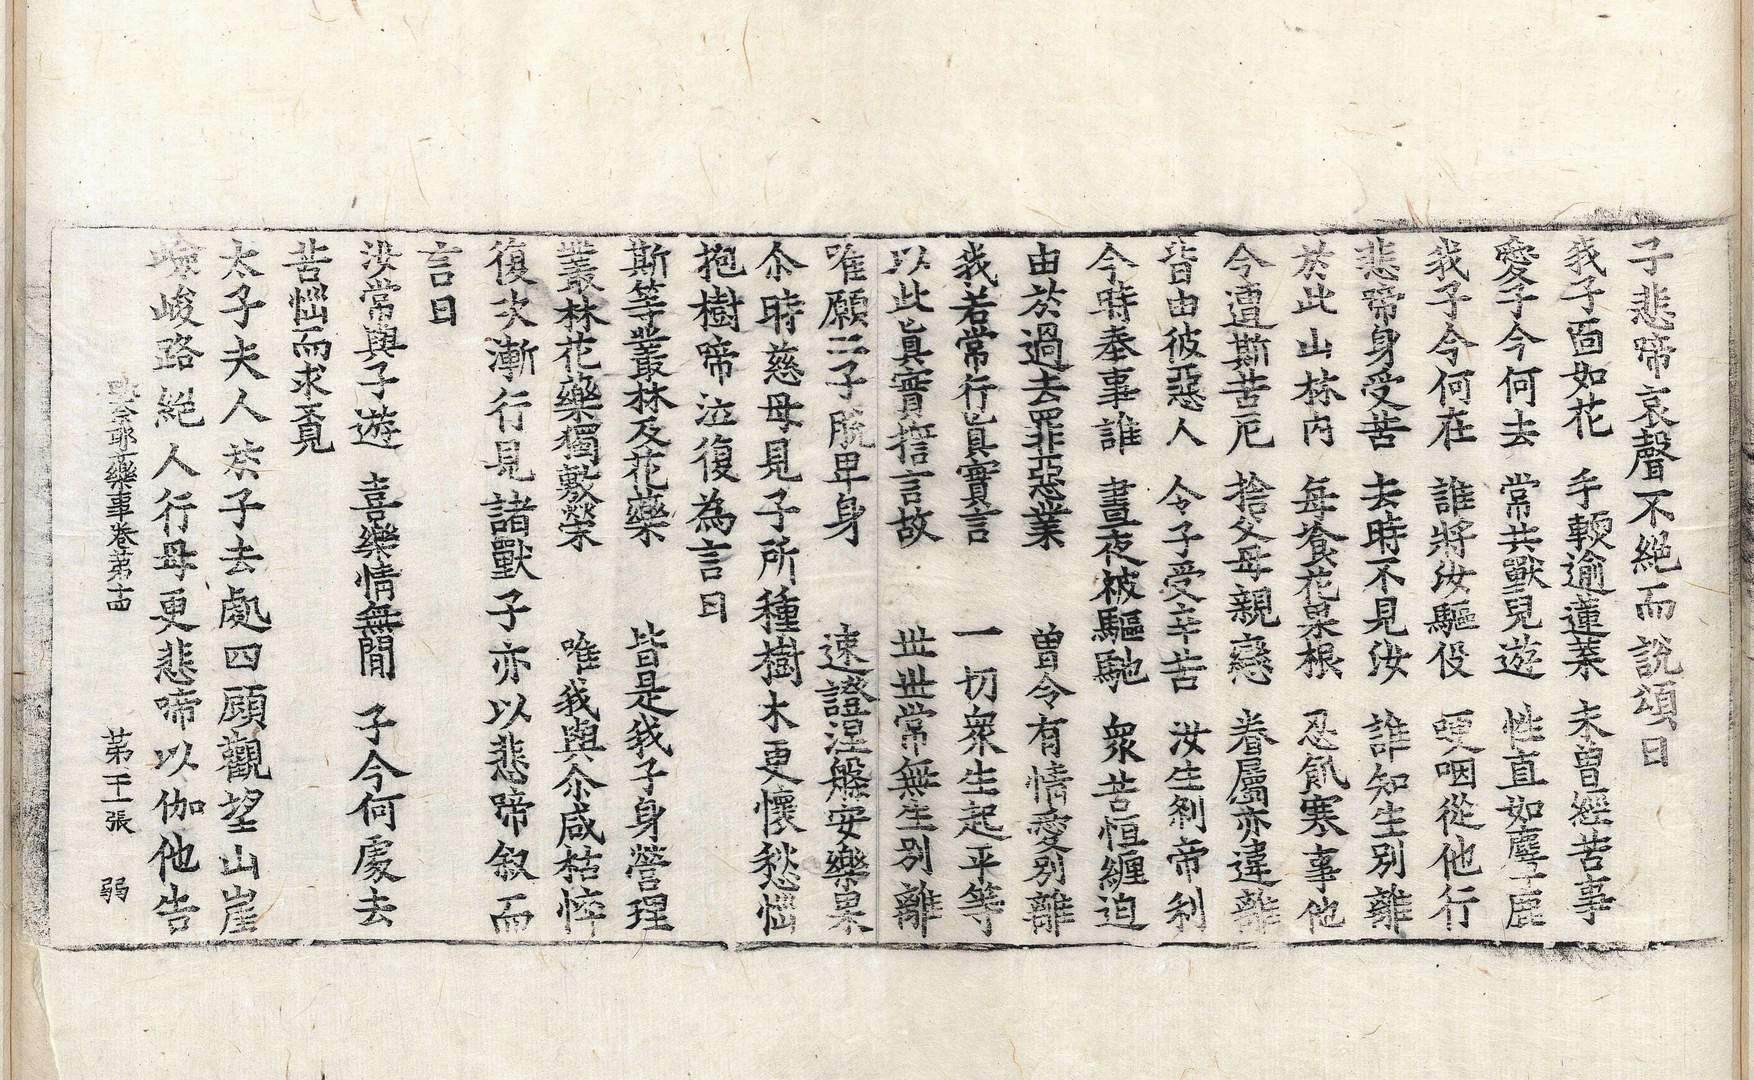 子悲啼哀聲不絕而說頌曰
我子面如花　手輭逾蓮蘂　未曾經苦事
愛子今何去　常共獸兒遊　性直如麞鹿
我子今何在　誰將汝驅役　哽咽從他行
悲啼身受苦　去時不見汝　誰知生別離
於此山林內　每飡花果根　忍飢寒事他
今遭斯苦厄　捨父母親戀　眷屬亦違離
皆由彼惡人　令子受辛苦　汝生刹帝利
今時奉事誰　晝夜被驅馳　衆苦恒纏迫
由於過去罪惡業　曾令有情愛別離
我若常行眞實言　一切衆生起平等
以此眞實捨言故　世世常無生別離
唯願二子脫卑身　速證涅盤安樂果
尒時慈母見子所種樹木更懷愁惱
抱樹啼泣復為言曰
斯等叢林及花藥　皆是我子身營理
叢林花藥獨敷榮　唯我與尒咸枯悴
復次漸行見諸獸子亦以悲啼叙而
言曰
汝常與子遊　喜樂情無閒　子今何處去
苦惱而求覓
太子夫人於子去處四顧觀望山崖
嶮峻路絕人行母更悲啼以伽他告
耶藥事卷第十四　第二十一張　弱